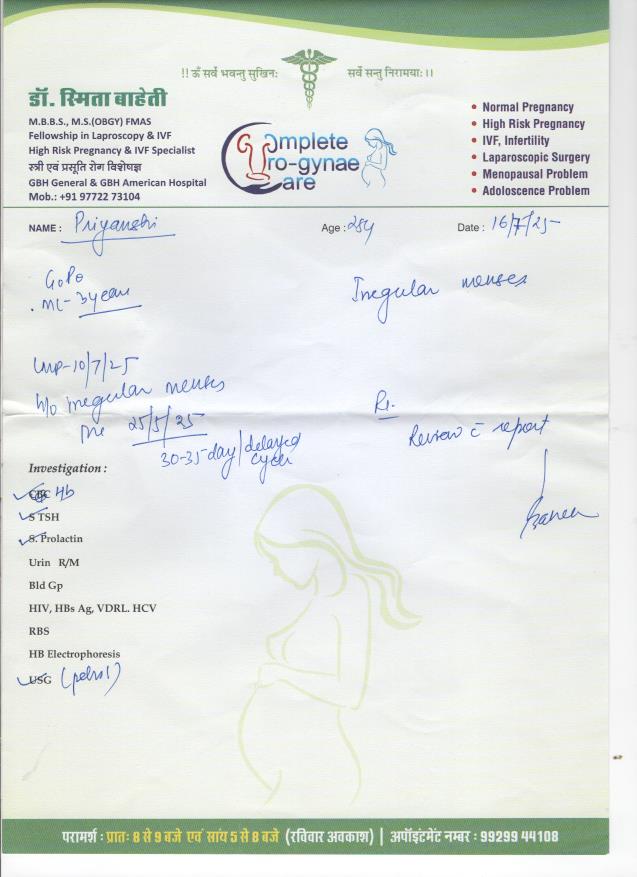 !! ॐ सर्वे भवन्तु सुखिनः सर्वे सन्तु निरामयाः।।
डॉ. स्मिता बाहेती
M.B.B.S., M.S.(OBGY) FMAS
Fellowship in Laproscopy & IVF
High Risk Pregnancy & IVF Specialist
स्त्री एवं प्रसूति रोग विशेषज्ञ
GBH General & GBH American Hospital
Mob.: +91 97722 73104
Complete
Uro-gynae
Care
• Normal Pregnancy
• High Risk Pregnancy
• IVF, Infertility
• Laparoscopic Surgery
• Menopausal Problem
• Adoloscence Problem
NAME : Priyanshi Age : 28y Date : 16/7/25
G0P0
ML - 3 year
Irregular menses
LMP - 10/7/25
h/o irregular menses
25/5/25
30-35 day/delayed
cycle
Rx.
Review c̄ report
Investigation :
CBC Hb
S TSH
S. Prolactin
Urin R/M
Bld Gp
HIV, HBs Ag, VDRL. HCV
RBS
HB Electrophoresis
USG (pelvis)
परामर्श : प्रातः 8 से 9 बजे एवं सायं 5 से 8 बजे (रविवार अवकाश) | अपॉइंटमेंट नम्बर : 99299 44108